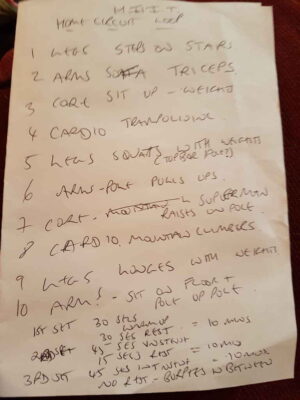 H I I T
HOME CIRCUIT LOOP
1 LEGS STEPS ON STAIRS
2 ARMS SOFA TRICEPS
3 CORE SIT UP - WEIGHTS
4 CARDIO TRAMPOLINING
5 LEGS SQUATS WITH WEIGHTS
(TOP FOR POLE)
6 ARMS - POLE PULLS UPS
7 CORE - SUPERMAN
RAISES ON POLE
8 CARDIO MOUNTAIN CLIMBERS
9 LEGS LUNGES WITH WEIGHTS
10 ARMS - SIT ON FLOOR +
PULL UP POLE
1ST SET 30 SECS
WARMUP
30 SECS REST = 10 MINS
2ND SET 45 SECS INSTENT
15 SECS REST = 10 MIN
3RD SET 45 SECS INTENT = 10 MINS
NO REST - BURPEES IN BETWEEN